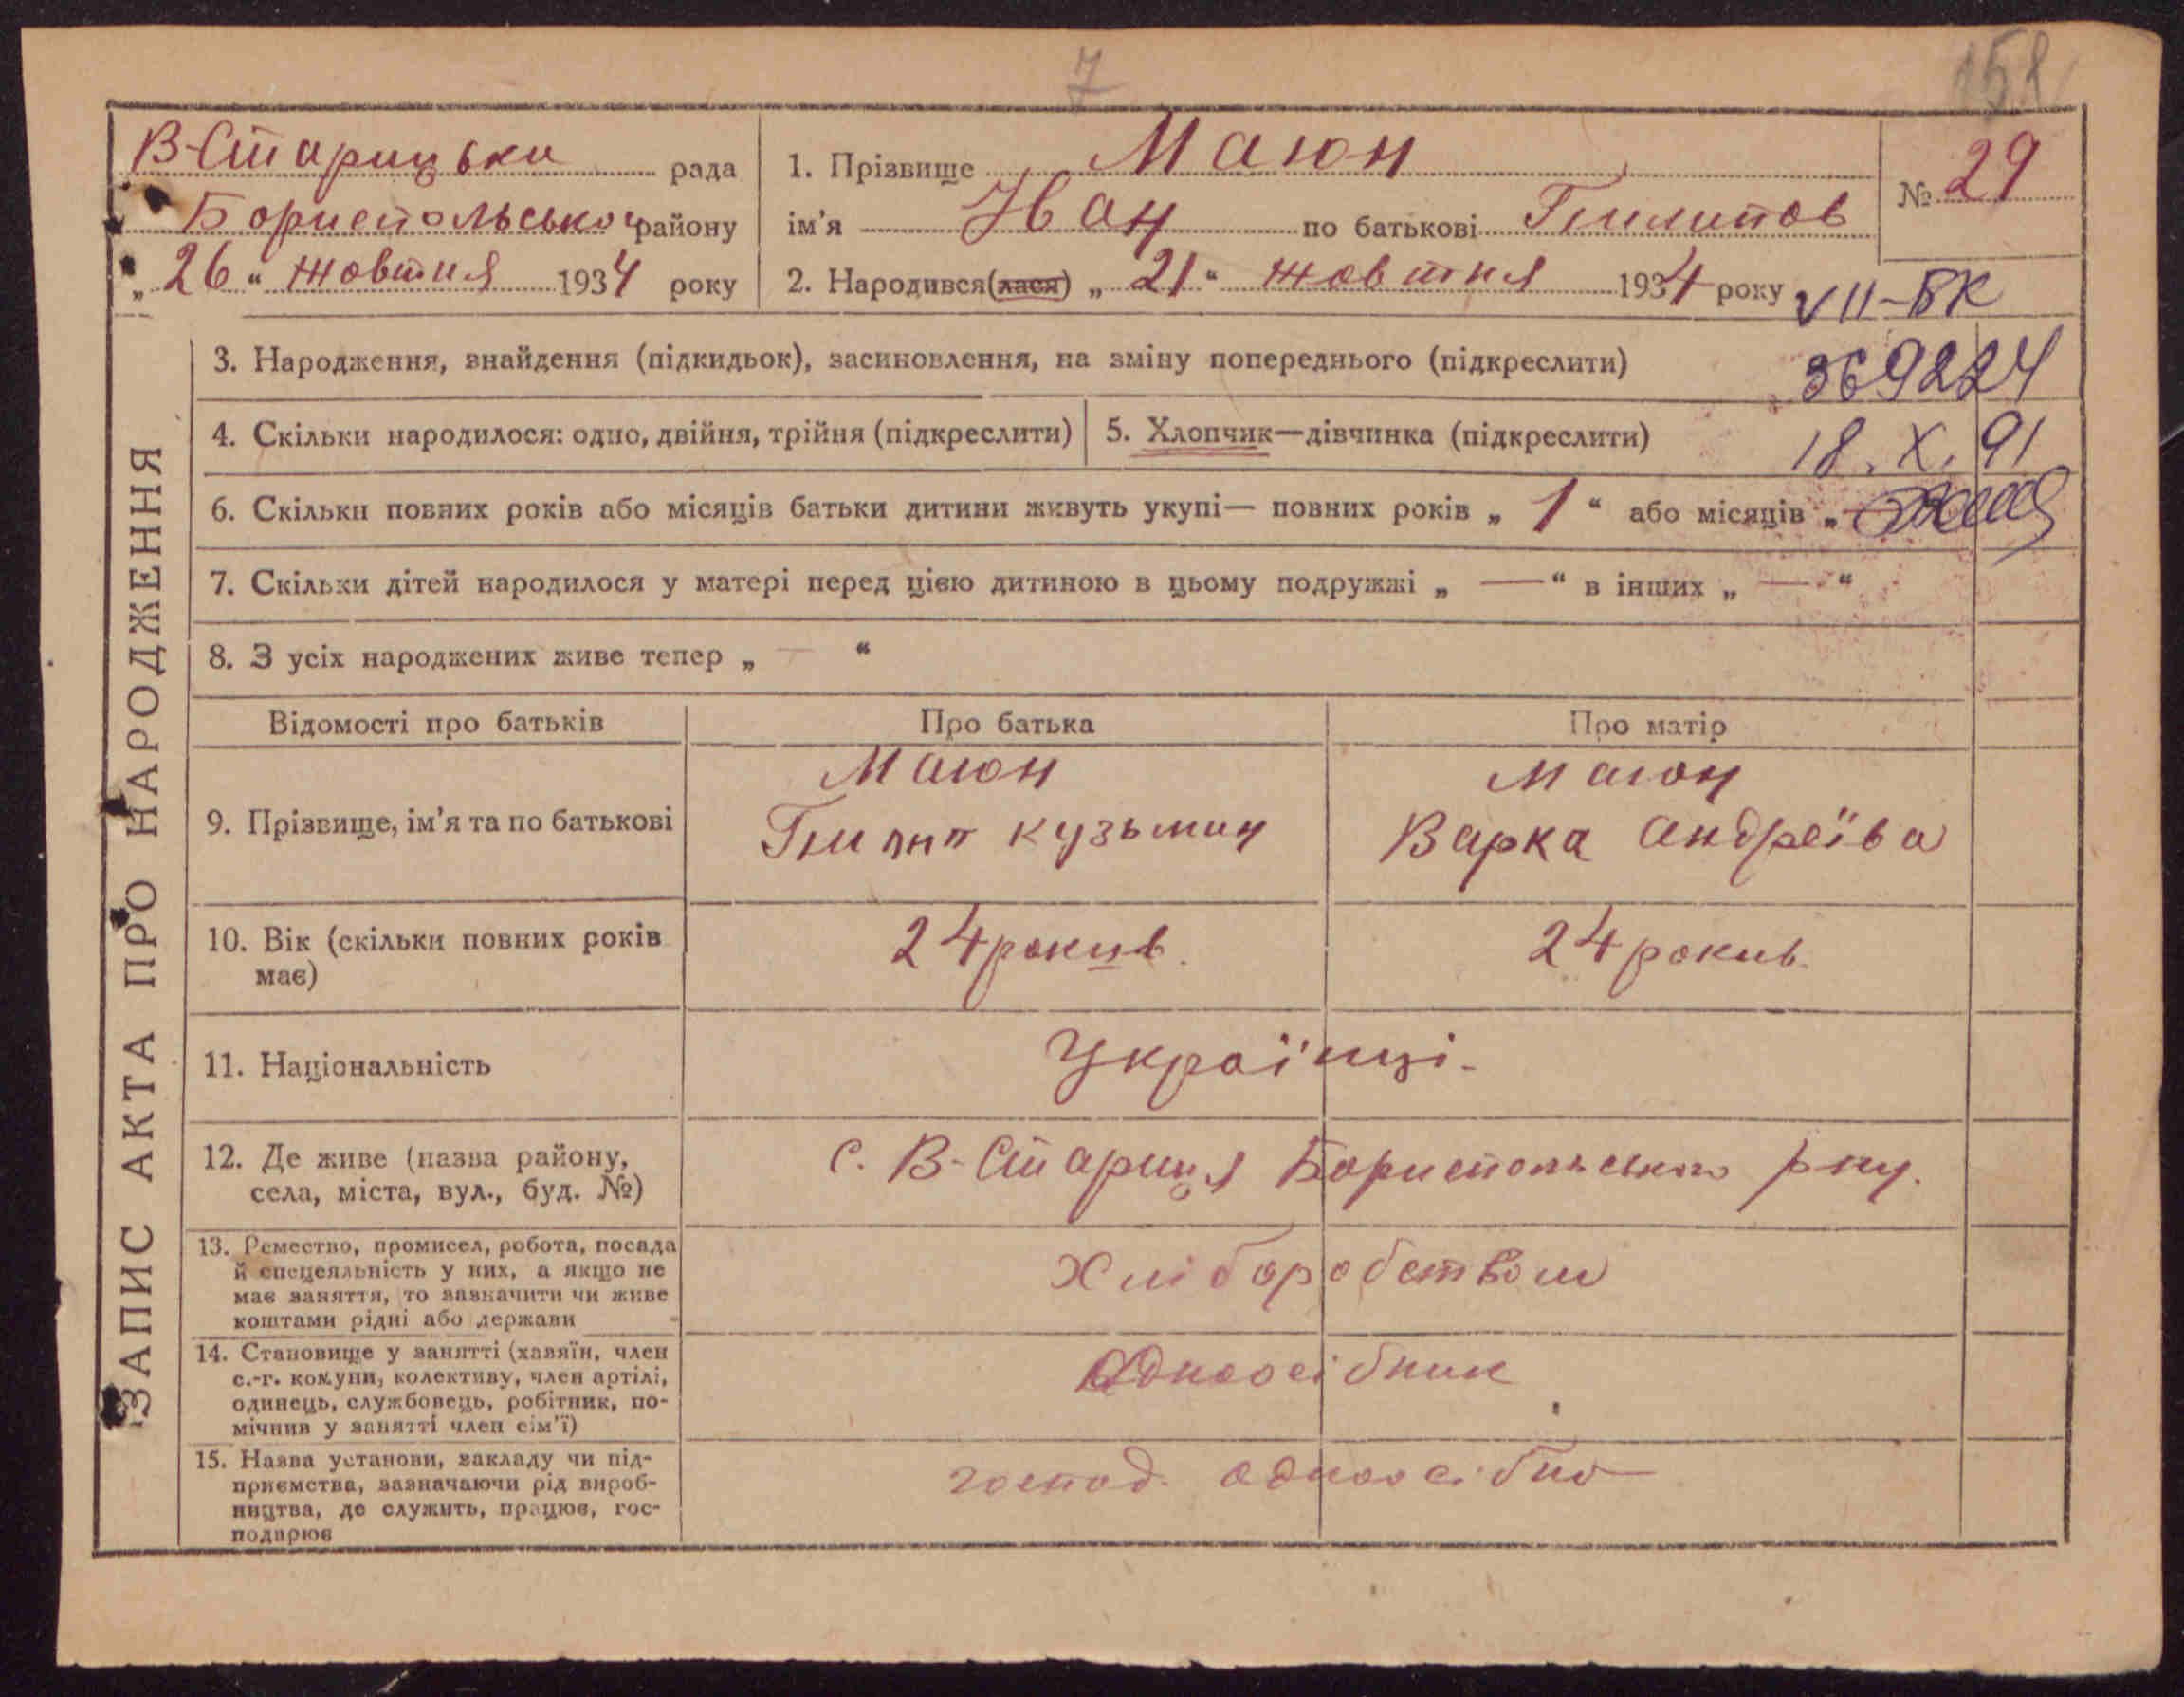 7
158
В-Старицька рада
Бориспольського району
„26“ жовтня 1934 року
1. Прізвище Маюн
ім'я Іван по батькові Пилипов
2. Народився(лася) „21“ жовтня 1934 року
№ 29
VII-БК
369224
18.X.91
ЗАПИС АКТА ПРО НАРОДЖЕННЯ
3. Народження, знайдення (підкидьок), засиновлення, на зміну попереднього (підкреслити)
4. Скільки народилося: одно, двійня, трійня (підкреслити)
5. Хлопчик—дівчинка (підкреслити)
6. Скільки повних років або місяців батьки дитини живуть укупі— повних років „1“ або місяців „
7. Скільки дітей народилося у матері перед цією дитиною в цьому подружжі „ — “ в інших „ — “
8. З усіх народжених живе тепер „ — “
Відомості про батьків
Про батька
Про матір
9. Прізвище, ім'я та по батькові
Маюн
Пилип Кузьмич
Маюн
Варка Андреїва
10. Вік (скільки повних років
має)
24 рокив.
24 рокив.
11. Національність
Українці.
12. Де живе (назва району,
села, міста, вул., буд. №)
с. В-Стариця Бориспольського р-ну.
13. Ремество, промисел, робота, посада
й спецеяльність у них, а якщо не
має заняття, то зазначити чи живе
коштами рідні або держави
Хліборобством
14. Становище у занятті (хазяїн, член
с.-г. комуни, колективу, член артілі,
одинець, службовець, робітник, по-
мічнив у занятті член сім'ї)
Одноосібник
15. Назва установи, закладу чи під-
приємства, зазначаючи рід вироб-
ництва, де служить, працює, гос-
подарює
господ. одноосібно